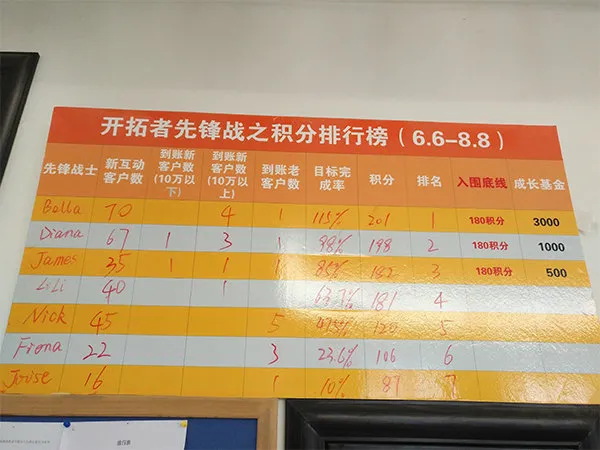 开拓者先锋战之积分排行榜（6.6-8.8）
先锋战士 新互动客户数 到账新客户数(10万以下) 到账新客户数(10万以上) 到账老客户数 目标完成率 积分 排名 入围底线 成长基金
Bella 70 4 1 115% 201 1 180积分 3000
Diana 67 1 3 1 98% 198 2 180积分 1000
James 35 1 1 1 85% 3 180积分 500
LiLi 40 1 181 4
Nick 45 5 120 5
Fiona 22 3 23.6% 106 6
Jouse 16 1 10% 87 7